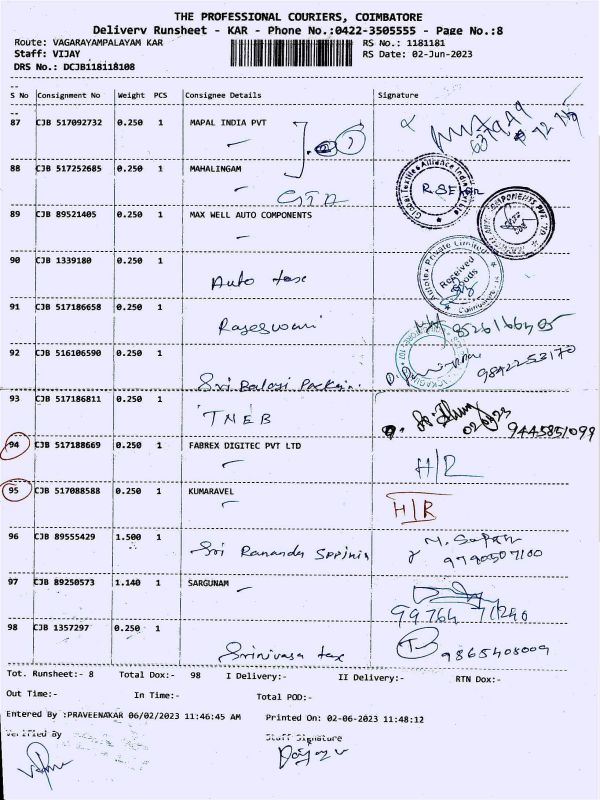 THE PROFESSIONAL COURIERS, COIMBATORE
Delivery Runsheet - KAR - Phone No.:0422-3505555 - Page No.:8
Route: VAGARAYAMPALAYAM KAR RS No.: 1181181
Staff: VIJAY RS Date: 02-Jun-2023
DRS No.: DCJB118118108
S No Consignment No Weight PCS Consignee Details Signature
87 CJB 517092732 0.250 1 MAPAL INDIA PVT
88 CJB 517252685 0.250 1 MAHALINGAM
89 CJB 89521405 0.250 1 MAX WELL AUTO COMPONENTS
90 CJB 1339180 0.250 1 Auto tex
Received Goods
91 CJB 517186658 0.250 1 Rajeswari
92 CJB 516106590 0.250 1 Sri Balaji 9842253170
93 CJB 517186811 0.250 1 TNEB 9445851099
94 CJB 517188669 0.250 1 FABREX DIGITEC PVT LTD H/R
95 CJB 517088588 0.250 1 KUMARAVEL H/R
96 CJB 89555429 1.500 1 Sri 9790507100
97 CJB 89250573 1.140 1 SARGUNAM 99764 71246
98 CJB 1357297 0.250 1 Srinivasa tex 9865408009
Tot. Runsheet:- 8 Total Dox:- 98 I Delivery:- II Delivery:- RTN Dox:-
Out Time:- In Time:- Total POD:-
Entered By :PRAVEENAKAR 06/02/2023 11:46:45 AM Printed On: 02-06-2023 11:48:12
Verified By Staff Signature